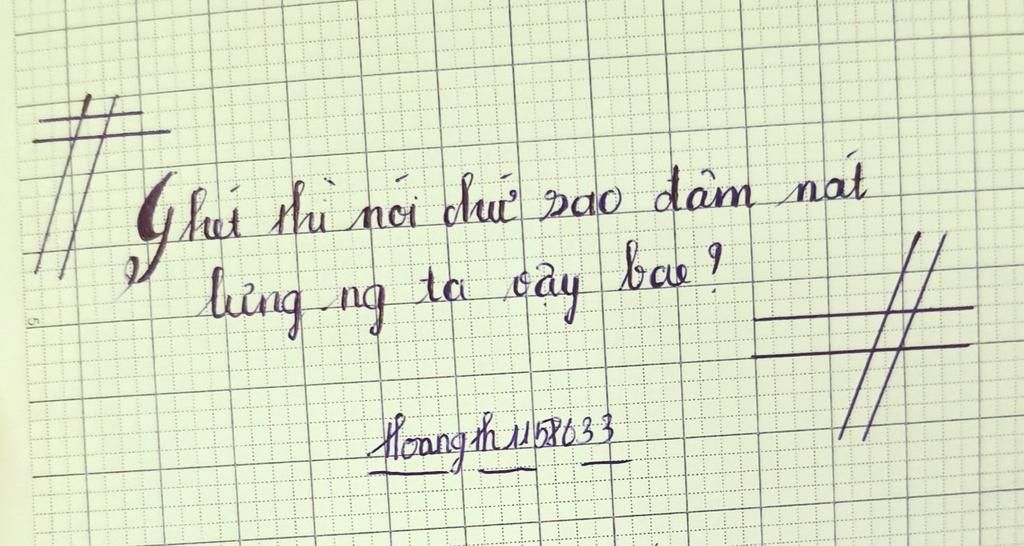 Ghét thì nói chứ sao dâm nát
lưng ng ta vậy bae?
Hoangth1158633
5